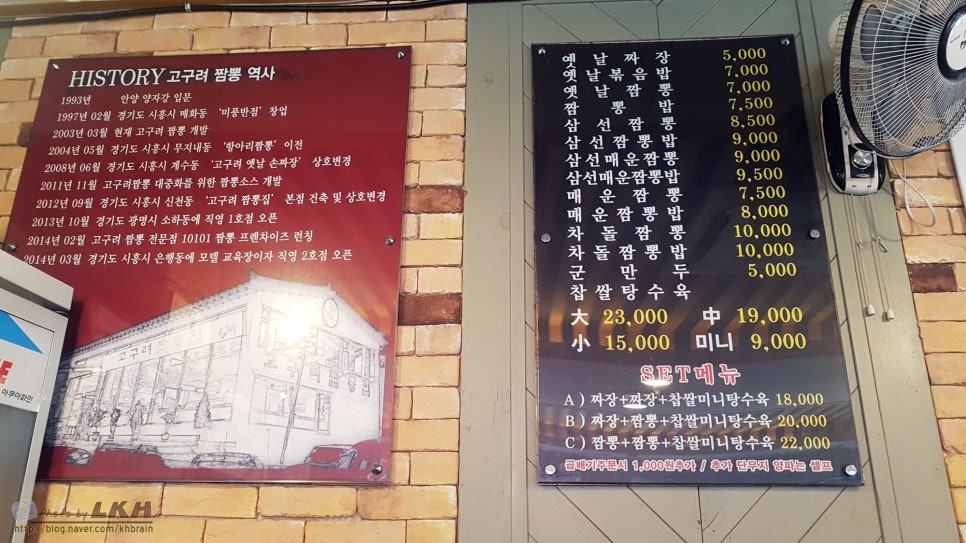 HISTORY 고구려 짬뽕 역사
1993년 안양 양자강 입문
1997년 02월 경기도 시흥시 매화동 '미풍반점' 창업
2003년 03월 현재 고구려 짬뽕 개발
2004년 05월 경기도 시흥시 무지내동 '항아리짬뽕' 이전
2008년 06월 경기도 시흥시 계수동 '고구려 옛날 손짜장' 상호변경
2011년 11월 고구려짬뽕 대중화를 위한 짬뽕소스 개발
2012년 09월 경기도 시흥시 신천동 '고구려 짬뽕집' 본점 건축 및 상호변경
2013년 10월 경기도 광명시 소하동에 직영 1호점 오픈
2014년 02월 고구려 짬뽕 전문점 10101 짬뽕 프렌차이즈 런칭
2014년 03월 경기도 시흥시 은행동에 모델 교육장이자 직영 2호점 오픈
고구려
아쿠아화인
옛날짜장 5,000
옛날볶음밥 7,000
옛날짬뽕 7,000
짬뽕밥 7,500
삼선짬뽕 8,500
삼선짬뽕밥 9,000
삼선매운짬뽕 9,000
삼선매운짬뽕밥 9,500
매운짬뽕 7,500
매운짬뽕밥 8,000
차돌짬뽕 10,000
차돌짬뽕밥 10,000
군만두 5,000
찹쌀탕수육
大 23,000 中 19,000
小 15,000 미니 9,000
SET메뉴
A ) 짜장+짜장+찹쌀미니탕수육 18,000
B ) 짜장+짬뽕+찹쌀미니탕수육 20,000
C ) 짬뽕+짬뽕+찹쌀미니탕수육 22,000
곱배기주문시 1,000원추가 / 추가 단무지 양파는 셀프
Photo by LKH
http://blog.naver.com/khbrain